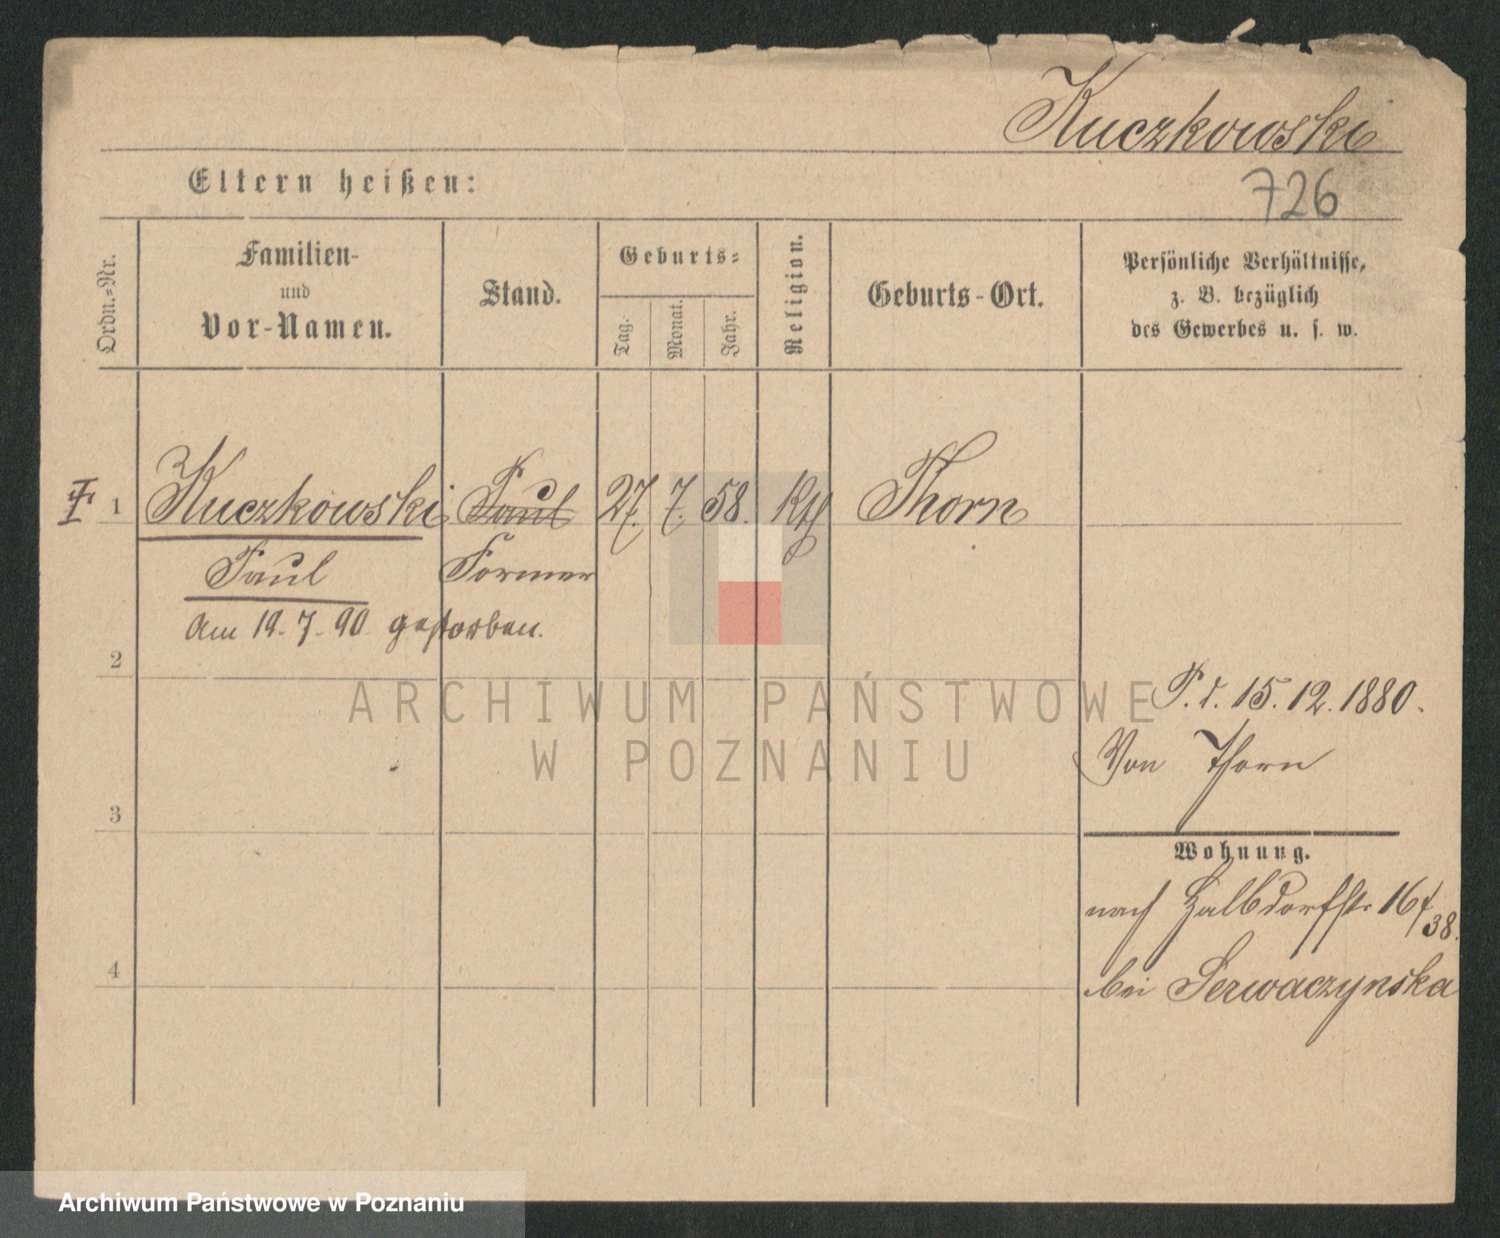 Kuczkowski
Eltern heißen:
726
Ordn.-Nr.
Familien-
und
Vor-Namen.
Stand.
Geburts-
Tag.
Monat.
Jahr.
Religion.
Geburts-Ort.
Persönliche Verhältnisse,
z. B. bezüglich
des Gewerbes u. s. w.
1 Kuczkowski Paul 27. 7. 58. Kth Thorn
Paul Former
Am 19. 7. 90 gestorben.
2
P. d. 15. 12. 1880.
Von Thorn
3
Wohnung.
nach Halbdorfstr 16/38.
4
bei Serwaczynska
ARCHIWUM PAŃSTWOWE
W POZNANIU
Archiwum Państwowe w Poznaniu